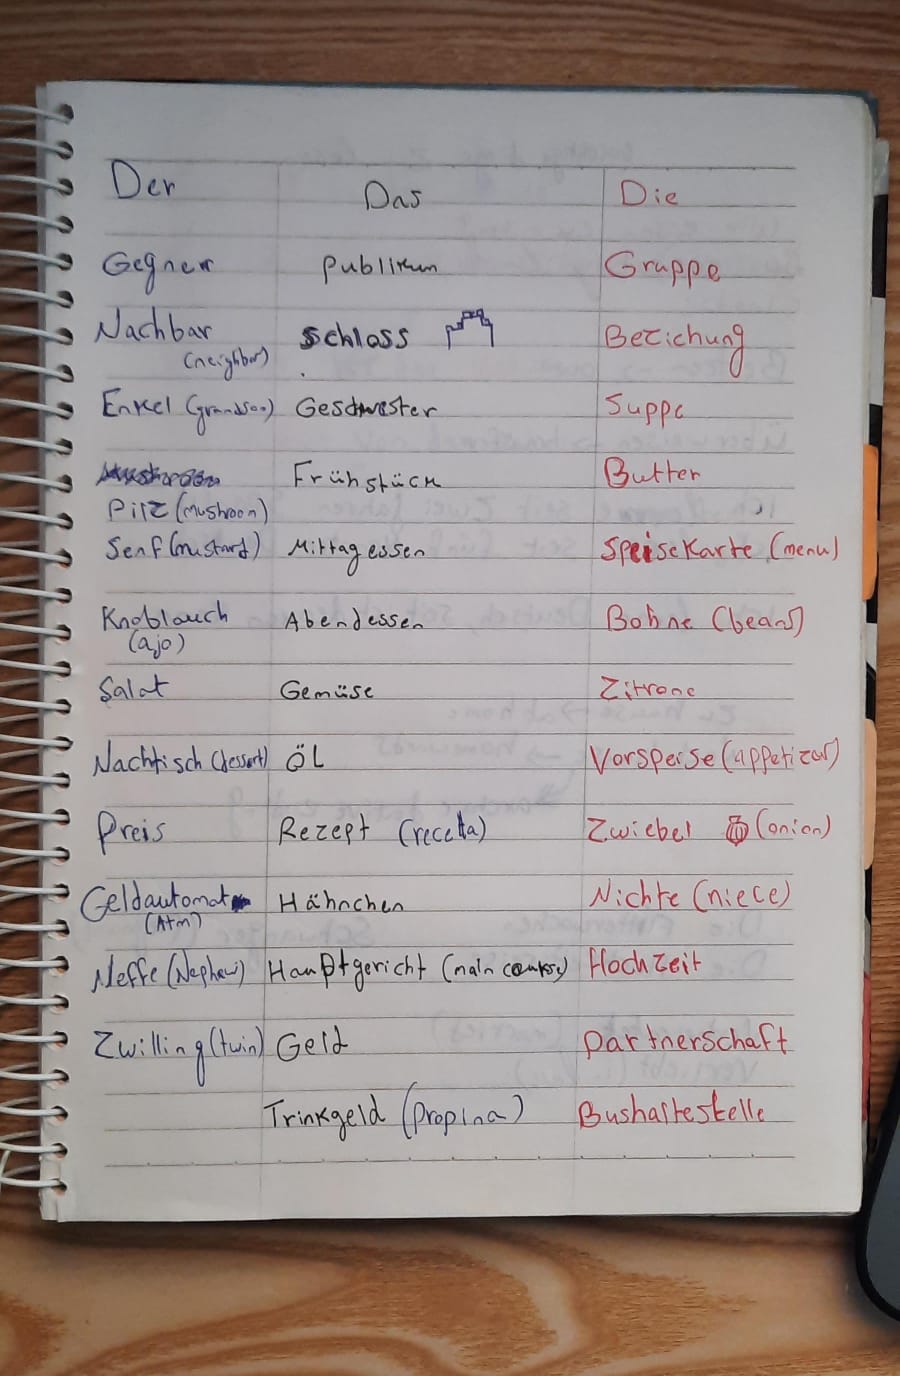 Der Das Die
Gegner Publikum Gruppe
Nachbar Schloss Beziehung
(neighbor)
Enkel (grandson) Geschwester Suppe
Frühstück Butter
Pilz (mushroon)
Senf (mustard) Mittagessen Speisekarte (menu)
Knoblauch Abendessen Bohne (beans)
(ajo)
Salat Gemüse Zitrone
Nachtisch (dessert) ÖL Vorspeise (appetizer)
Preis Rezept (receta) Zwiebel (onion)
Geldautomat Hähnchen Nichte (niece)
(Atm)
Neffe (Nephew) Hauptgericht (main course) Hochzeit
Zwilling (twin) Geld Partnerschaft
Trinkgeld (Propina) Bushaltestelle